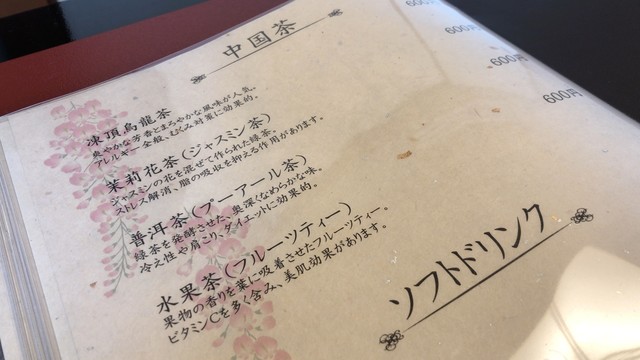 中国茶
凍頂烏龍茶 600円
爽やかな芳香とまろやかな風味が人気。
アレルギー全般、むくみ対策に効果的。
茉莉花茶(ジャスミン茶) 600円
ジャスミンの花を混ぜて作られた緑茶。
ストレス解消、脂の吸収を抑える作用があります。
普洱茶(プーアール茶) 600円
緑茶を発酵させた、奥深くなめらかな味。
冷え性や肩こり、ダイエットに効果的。
水果茶(フルーツティー) 600円
果物の香りを葉に吸着させたフルーツティー。
ビタミンCを多く含み、美肌効果があります。
ソフトドリンク